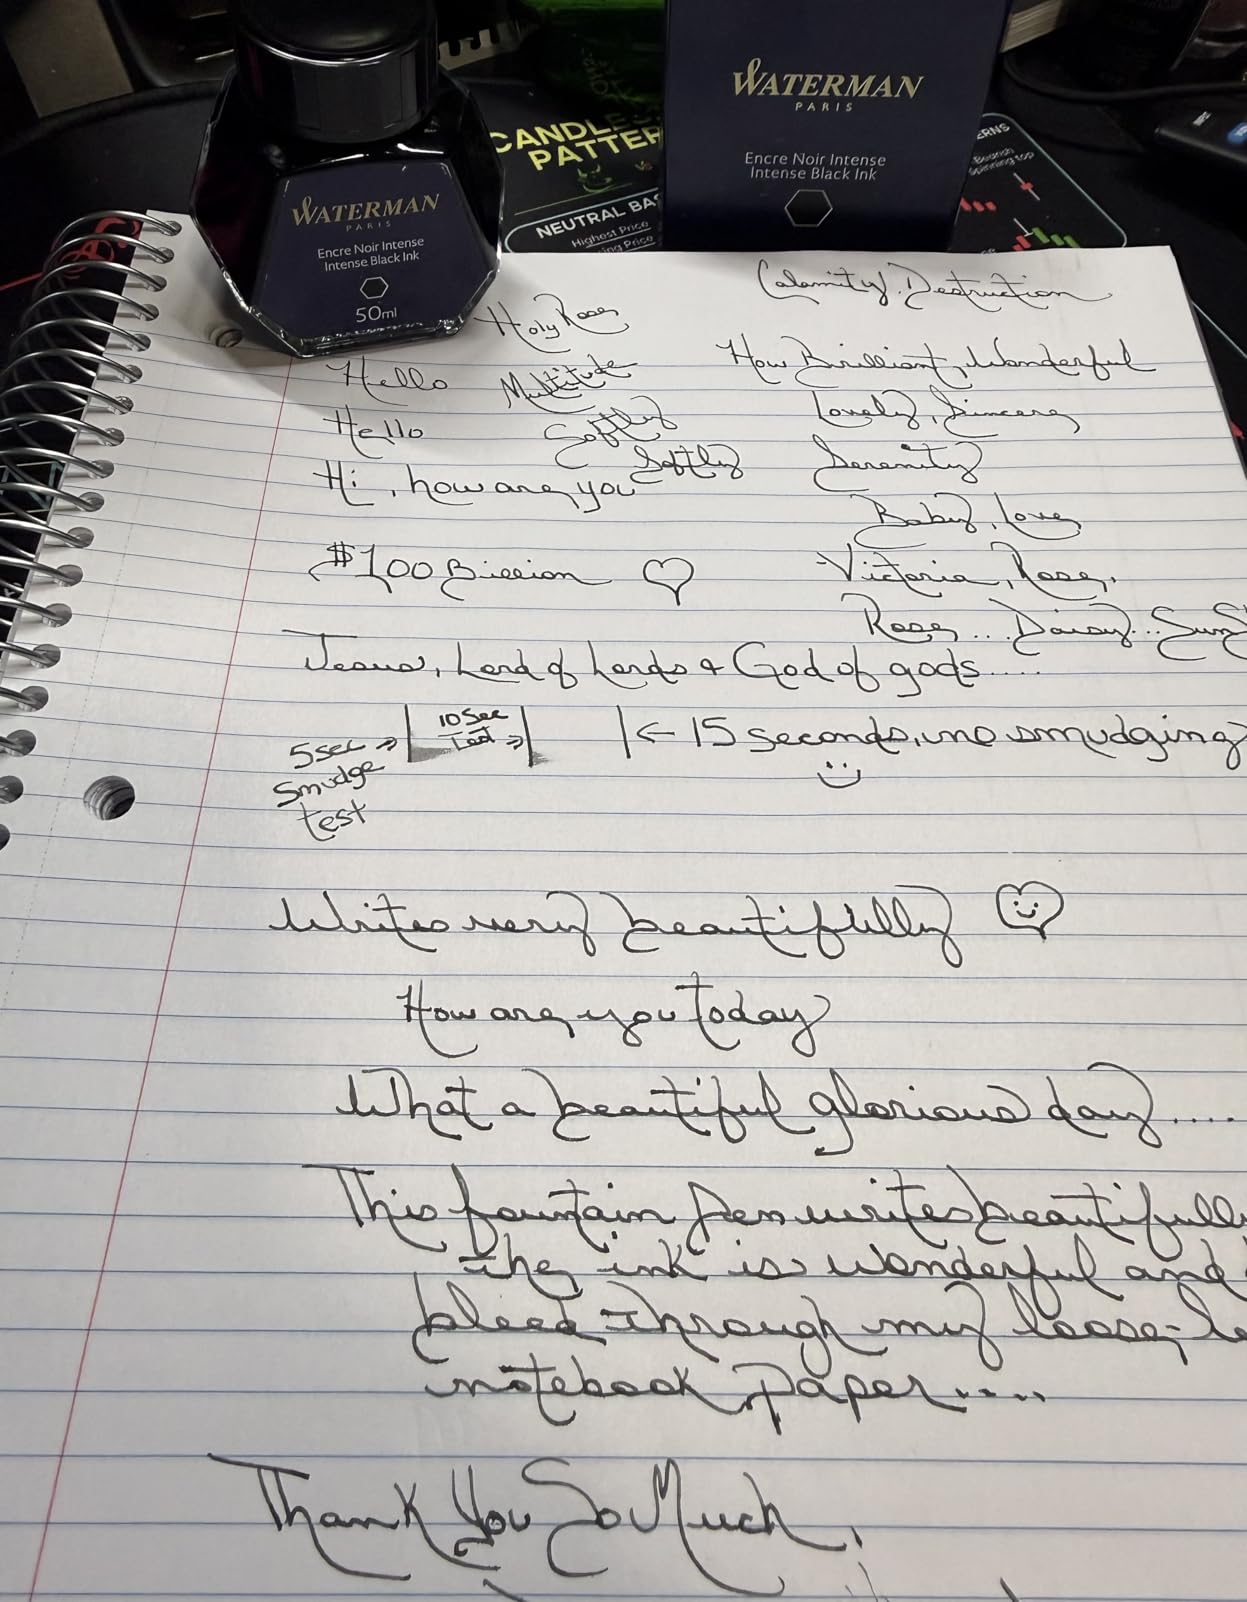 WATERMAN
PARIS
Encre Noir Intense
Intense Black Ink
CANDLES
PATTER
NEUTRAL BA
Highest Price
ing Price
ERNS
Bearish
Spinning top
WATERMAN
PARIS
Encre Noir Intense
Intense Black Ink
50ml
Calamity, Destruction
Holy Rose
Hello Multitude
How Brilliant, Wonderful
Hello Softly
Lovely, Sincere
Softly
Serenity
Hi, how are you
Baby, Love,
$100 Billion
Victoria, Rose,
Rose... Daisy... Sun
Jesus, Lord of Lords & God of gods.....
5sec
10 Sec
Test
← 15 seconds, no smudging
Smudge
test
Writes very beautifully
How are you today
What a beautiful glorious day....
This fountain pen writes beautifull
the ink is wonderful and
bleed through my loose-le
notebook paper....
Thank You So Much,